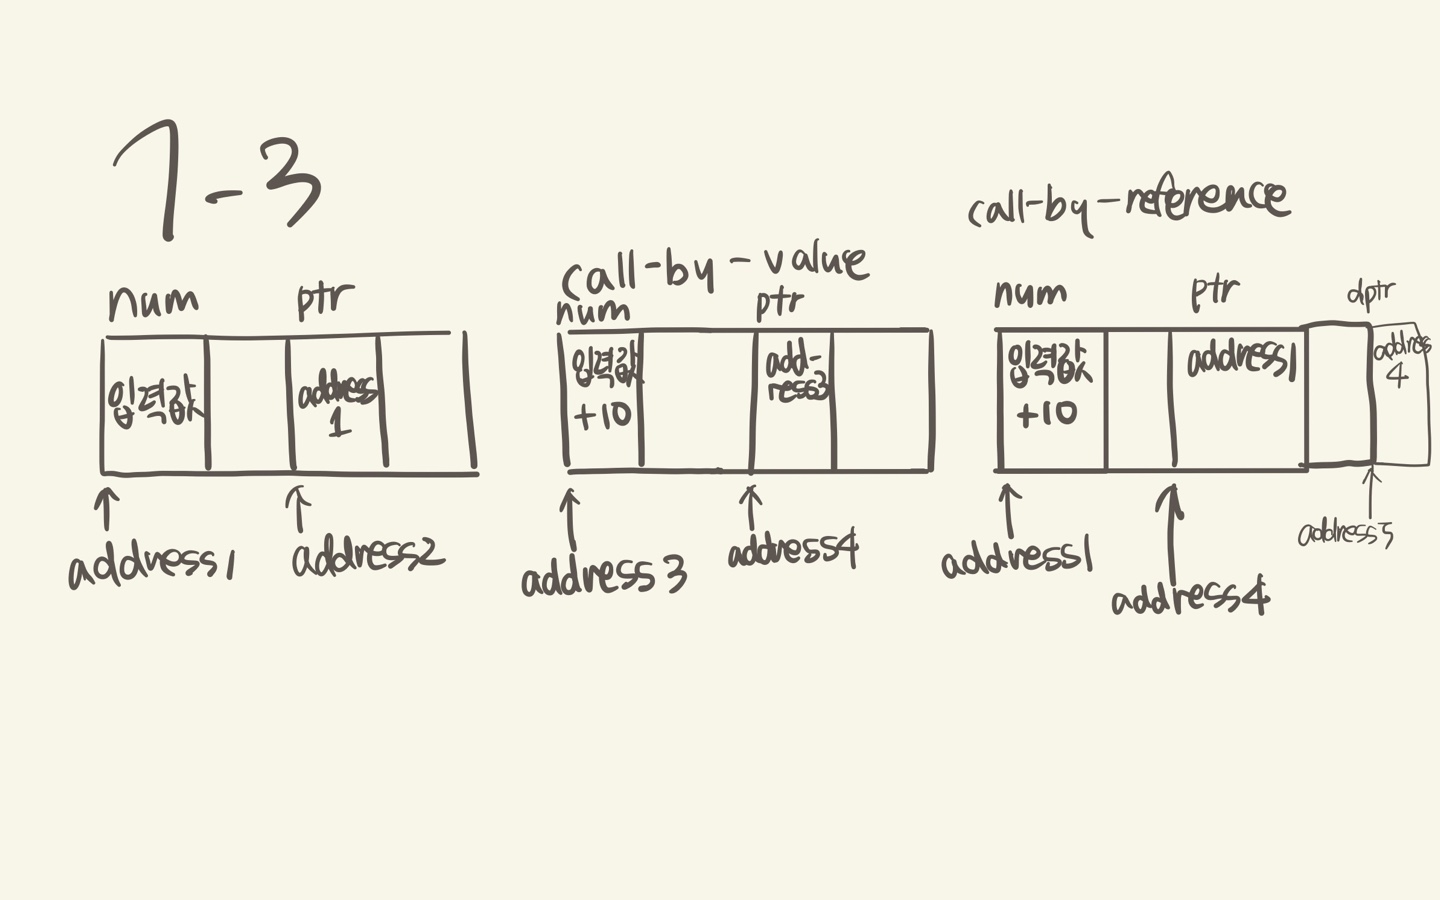 7-3
num
ptr
입력값
address
1
address1
address2
call-by-value
num
ptr
입력값
+10
add-
ress3
address3
address4
call-by-reference
num
ptr
dptr
입력값
+10
address1
address
4
address1
address4
address5